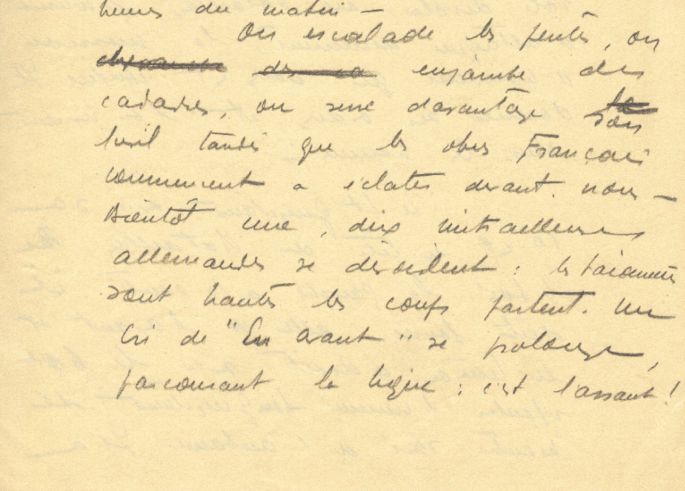 heures du matin —
On escalade les pentes, on
enjambe des
cadavres, on serre davantage son
fusil tandis que les obus Français
commencent a éclater devant nous —
Bientôt une, dix mitrailleuses
allemandes se dévoilent : les baionnettes
sont hautes les coups partent. Un
cri de "En avant" se prolonge,
parcourant la ligne : c'est l'assaut !